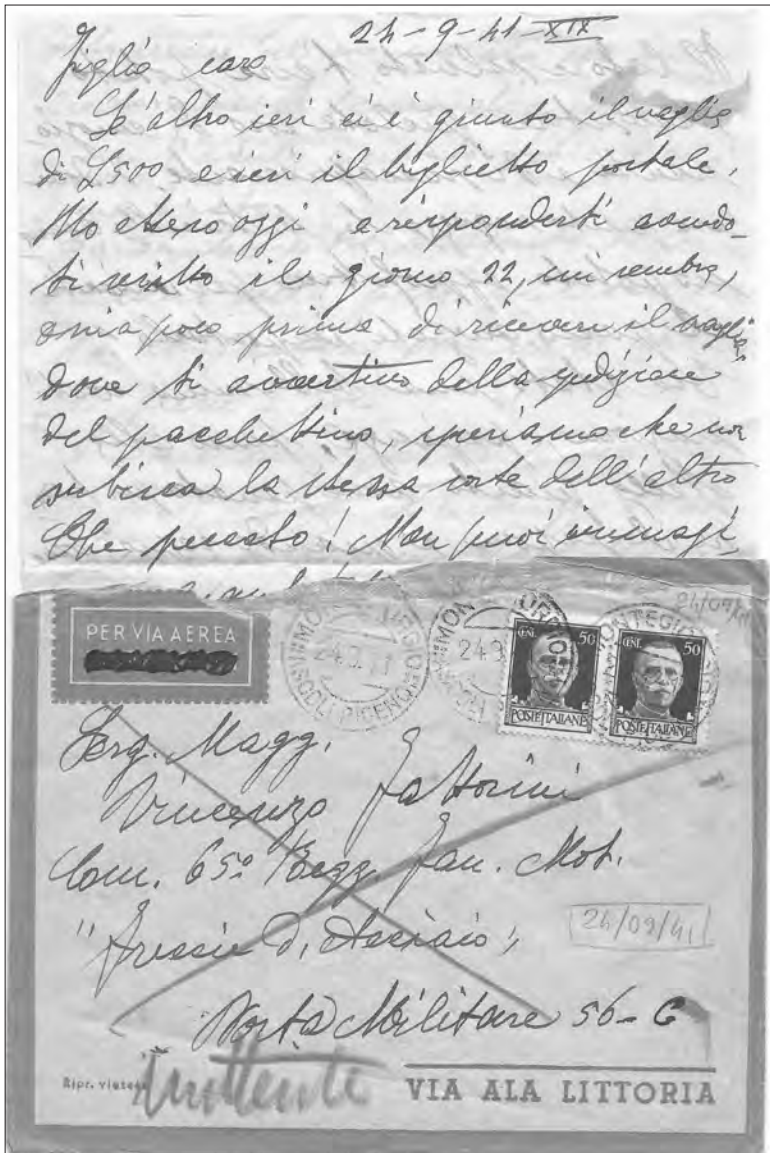 24-9-41-XIX
Figlio caro
L'altro ieri ci è giunto il vaglia
di L500 e ieri il biglietto postale.
oggi a risponderti avendo-
ti scritto il giorno 22, mi sembra,
ossia poco prima di ricevere il vaglia,
dove ti avvertivo della spedizione
del pacchettino, speriamo che non
subisca la stessa sorte dell'altro
Che peccato! Non puoi immagi
24/09/41
PER VIA AEREA
24.9.41
ASCOLI PICENO
24.9
CENT. 50
POSTE ITALIANE
CENT. 50
POSTE ITALIANE
MONTEGIO
Serg. Magg.
Vincenzo Fattorini
Com. 65° Regg. Fan. Mot.
"Freccie D'Acciaio"
24/09/41
Posta Militare 56-C
Ripr. vietata
mittente
VIA ALA LITTORIA